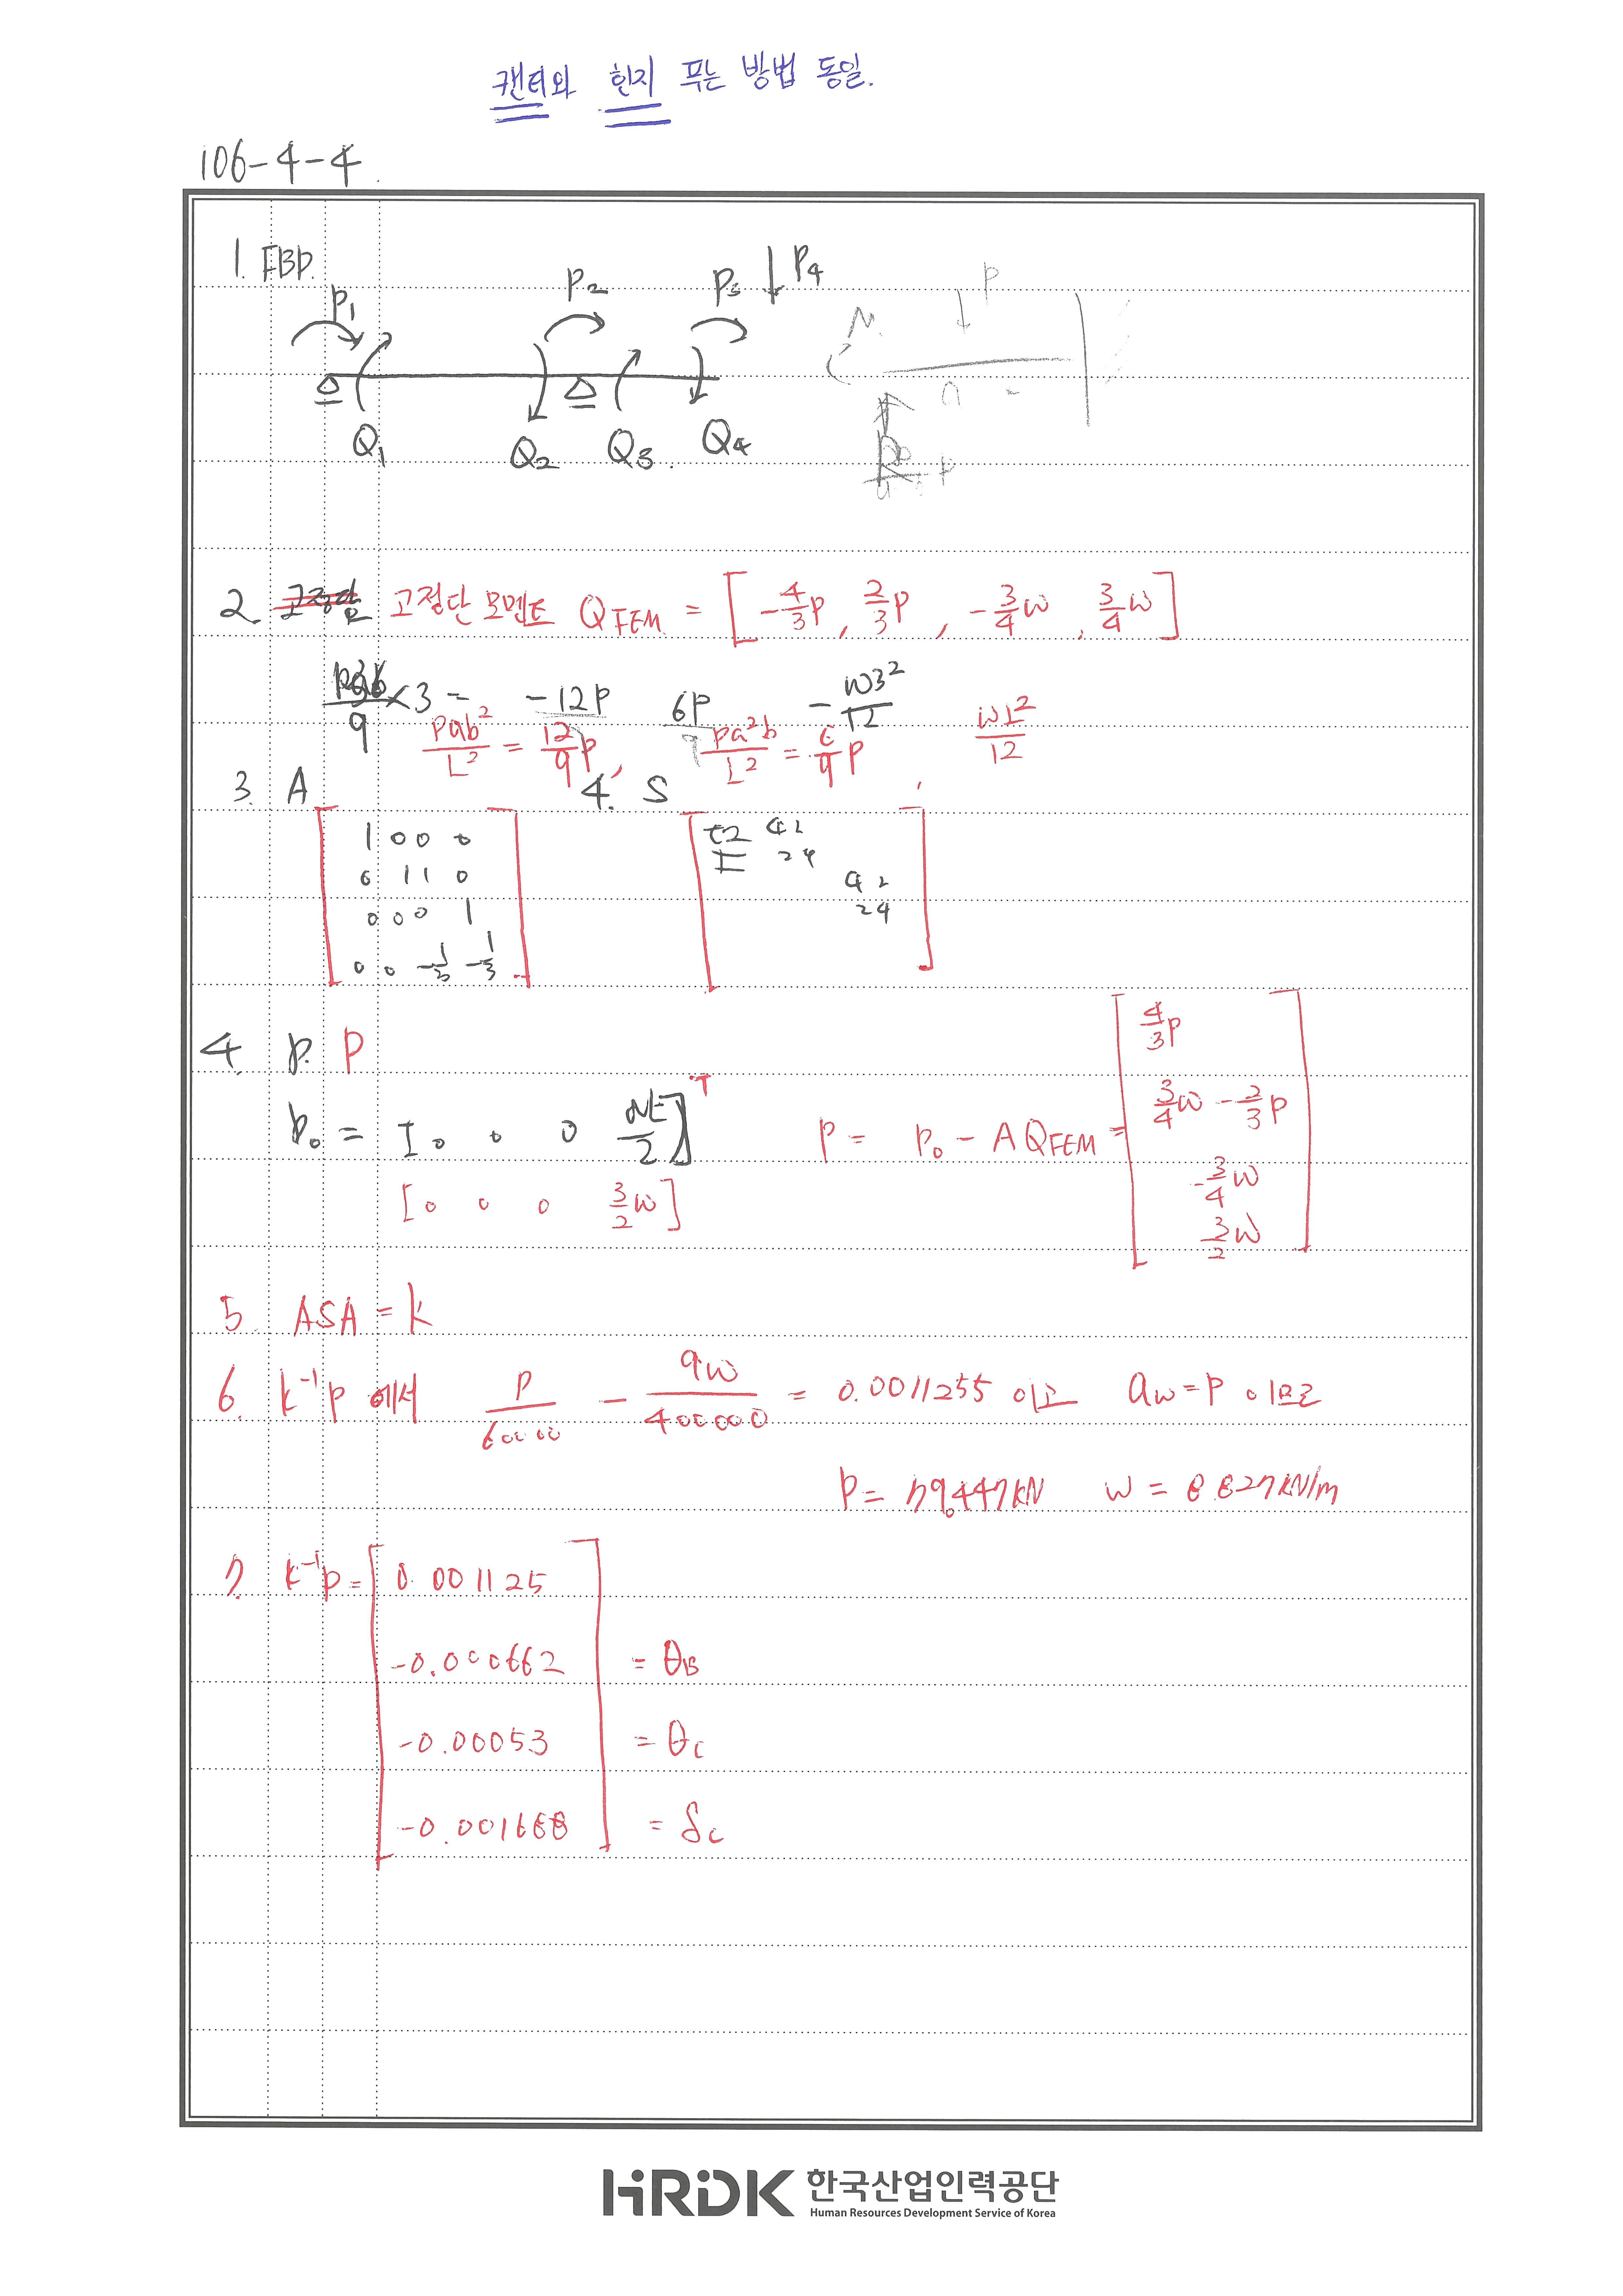 캔티와 힌지 푸는 방법 동일.
106-4-4.
1. FBD.
P1 P2 P3 P4
Q1 Q2 Q3. Q4
M. P
2. 고정단 모멘트 QFEM. = [-4/3P, 2/3P, -3/4w, 3/4w]
/9 ×3 = -12P 6P -w3²/12 wL²/12
Pab²/L² = 12/9P, Pa²b/L² = 6/9P,
3. A 4. S
1 0 0 0
0 1 1 0
0 0 0 1
0 0 -1/3 -1/3
4 2
2 4
4 2
2 4
4. P. P
P₀ = [0 0 0 wL/2]ᵀ P = P₀ - AQFEM = [4/3P
3/4w - 2/3P
-3/4w
3/2w]
[0 0 0 3/2w]
5. ASA = k
6. k⁻¹P 에서 P/60000 - 9w/400000 = 0.0011255 이고 9w=P 이므로
P = 79.447kN w = 8.827kN/m
7. k⁻¹P = [0.001125
-0.000662 = θB
-0.00053 = θC
-0.001688] = δC
HRDK 한국산업인력공단
Human Resources Development Service of Korea